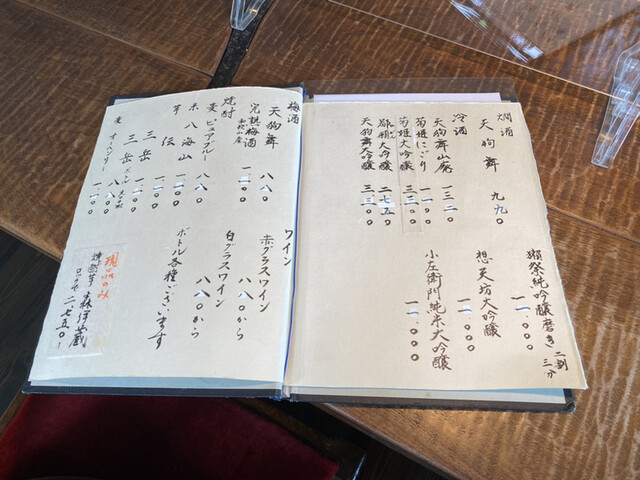 燗酒
天狗舞 九九〇
冷酒
天狗舞山廃 一、三二〇
菊姫にごり 一、一〇〇
菊姫大吟醸 三、三〇〇
大吟醸 二、七五〇
天狗舞大吟醸 三、三〇〇
獺祭純吟醸磨き二割三分
一一、〇〇〇
想天坊大吟醸
一一、〇〇〇
小左衛門純米大吟醸
一一、〇〇〇
梅酒
天狗舞 八八〇
完熟梅酒 一、一〇〇
焼酎
麦 ピュアブルー 八八〇
米 八海山 一、一〇〇
芋 伝 一、一〇〇
三岳 一、一〇〇
三岳 一、一〇〇
麦
ワイン
赤グラスワイン
八八〇から
白グラスワイン
八八〇から
ボトル各種ございます
現品のみ
森伊蔵
二、七五〇